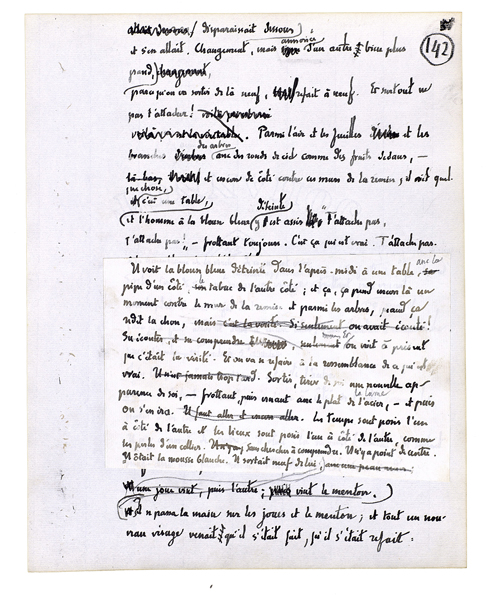 142
disparaissait dessous) ;
et s'en allait. Changement, mais annonce d'un autre bien plus
grand, changement,
parce qu'on en sortir de là neuf, refait à neuf. Et surtout ne
pas t'attacher !
Parmi l'air et les feuilles et les
branches des arbres avec des ronds de ciel comme des fruits dedans, –
là-bas, et encore de côté contre ces murs de la remise, il voit quel-
que chose,
c'est une table, déteinte
et l'homme à la blouse bleue y est assis t'attache pas,
t'attache pas ! – frottant toujours. C'est ça qui est vrai. T'attache pas.
Il voit la blouse bleue déteinte dans l'après-midi à une table, avec la
pipe d'un côté, le tabac de l'autre côté ; et ça, ça prend encore là un
moment contre le mur de la remise et parmi les arbres, quand ça
dit la chose, mais c'est la vérité. Si seulement on avait écouté !
Su écouter, et su comprendre seulement on voit à présent
que c'était la vérité. Et on va se refaire à la ressemblance de ce qui est
vrai. Il n'est jamais trop tard. Sortir, tirer de soi une nouvelle ap-
parence de soi, – frottant, puis venant avec le plat de l'acier, – et puis
la lame
on s'en ira. Il faut aller et encore aller. Les temps sont posés l'un
à côté de l'autre et les lieux sont posés l'un à côté de l'autre, comme
les perles d'un collier. Sans chercher à comprendre. Il n'y a point de centre.
Il ôtait la mousse blanche. Il sortait neuf de lui ;
une joue vint, puis l'autre ; puis vint le menton.)
Il se passa la main sur les joues et le menton ; et tout un nou-
veau visage venait qu'il s'était fait, qu'il s'était refait.